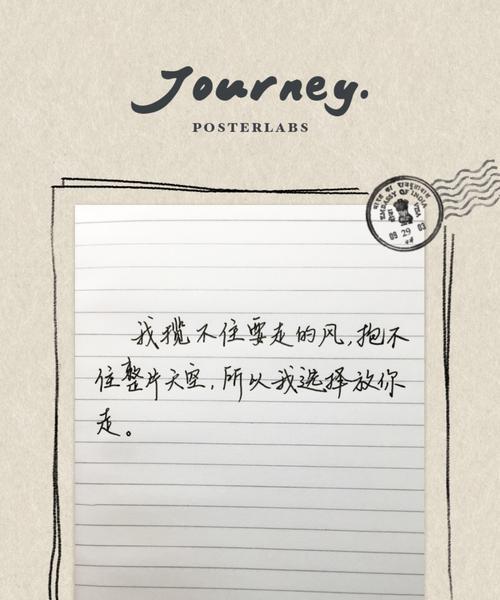 Journey.
POSTERLABS
EMBASSY OF INDIA
29
03
我揽不住要走的风,抱不
住整片天空,所以我选择放你
走。